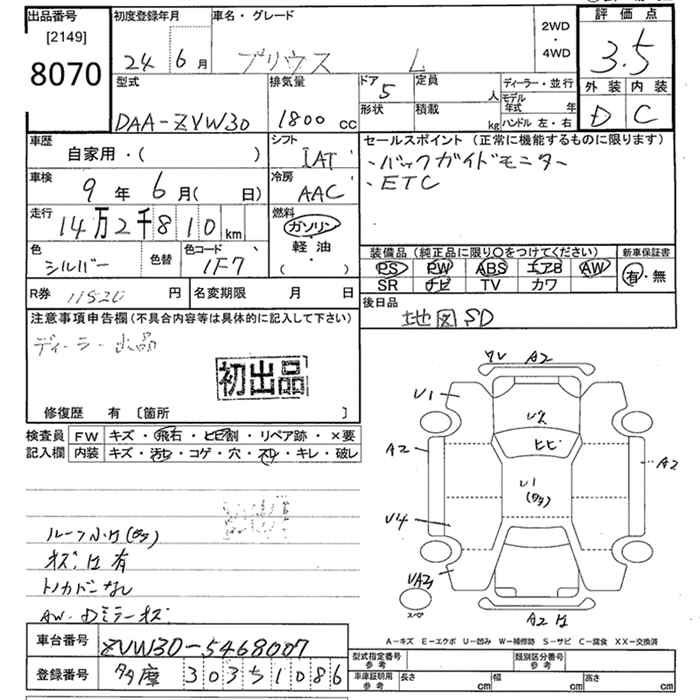 出品番号
[2149]
8070
初度登録年月
24 6月
車名・グレード
プリウス L
2WD
・
4WD
評価点
3.5
外装 内装
D C
型式
DAA-ZVW30
排気量
1800 cc
ドア
5
形状
定員
人
積載
kg
ディーラー・並行
モデル
年式 年
ハンドル 左・右
車歴
自家用・( )
シフト
IAT
セールスポイント (正常に機能するものに限ります)
・バックガイドモニター
・ETC
車検
9年 6月( 日)
冷房
AAC
走行
14万2千810km
燃料
ガソリン・
軽油・
( )
色
シルバー
色替
色コード
1F7
装備品 (純正品に限り〇をつけてください)
PS PW ABS エアB AW
SR ナビ TV カワ
新車保証書
有・無
R券 11520 円
名変期限 月 日
後日品
地図SD
注意事項申告欄 (不具合内容等は具体的に記入して下さい)
ディーラー出品
初出品
修復歴 有 〔箇所 〕
検査員
記入欄
FW キズ・飛石・ヒビ割・リペア跡・×要
内装 キズ・汚れ・コゲ・穴・スレ・キレ・破レ
A2
U1
U2
ヒビ
A2
A2
U1
U4
スペア
A2
ルーフ
有
AW・Dミラーキズ
A－キズ E－エクボ U－凹み W－補修跡 S－サビ C－腐食 XX－交換済
車台番号 ZVW30-5468007
登録番号 多摩 303 51086
型式指定番号
参考
類別区分番号
参考
車庫証明用
参考
長さ cm
幅 cm
高さ cm